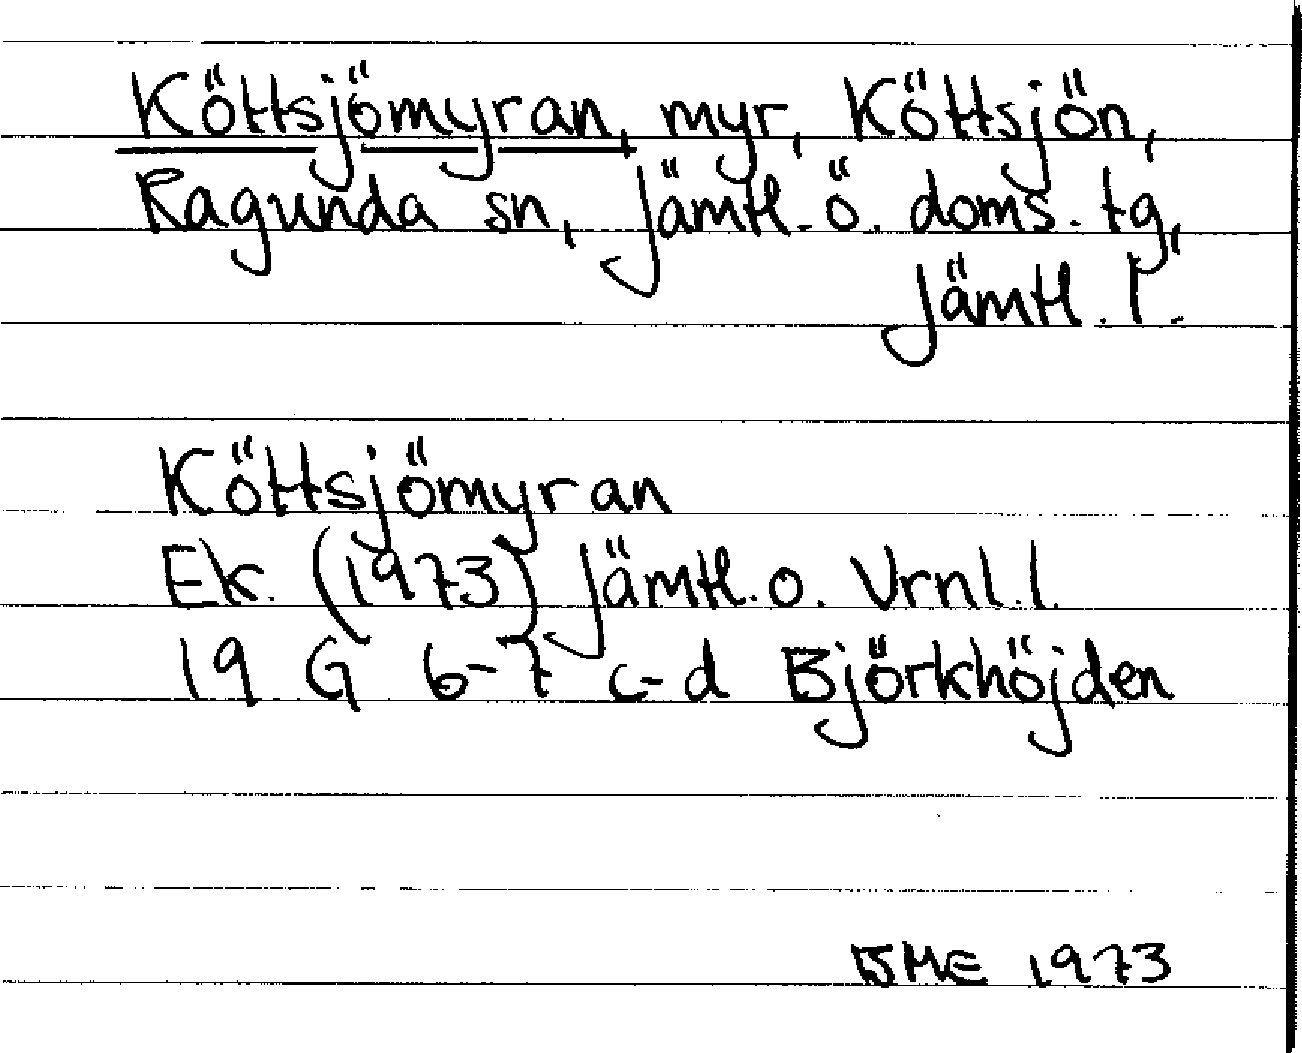 Köttsjömyran, myr, Köttsjön,
Ragunda sn, Jämtl. ö. doms. tg,
Jämtl. l.
Köttsjömyran
Ek. (1973) Jämtl. o. Vrnl. l.
19 G 6-7 c-d Björkhöjden
BME 1973